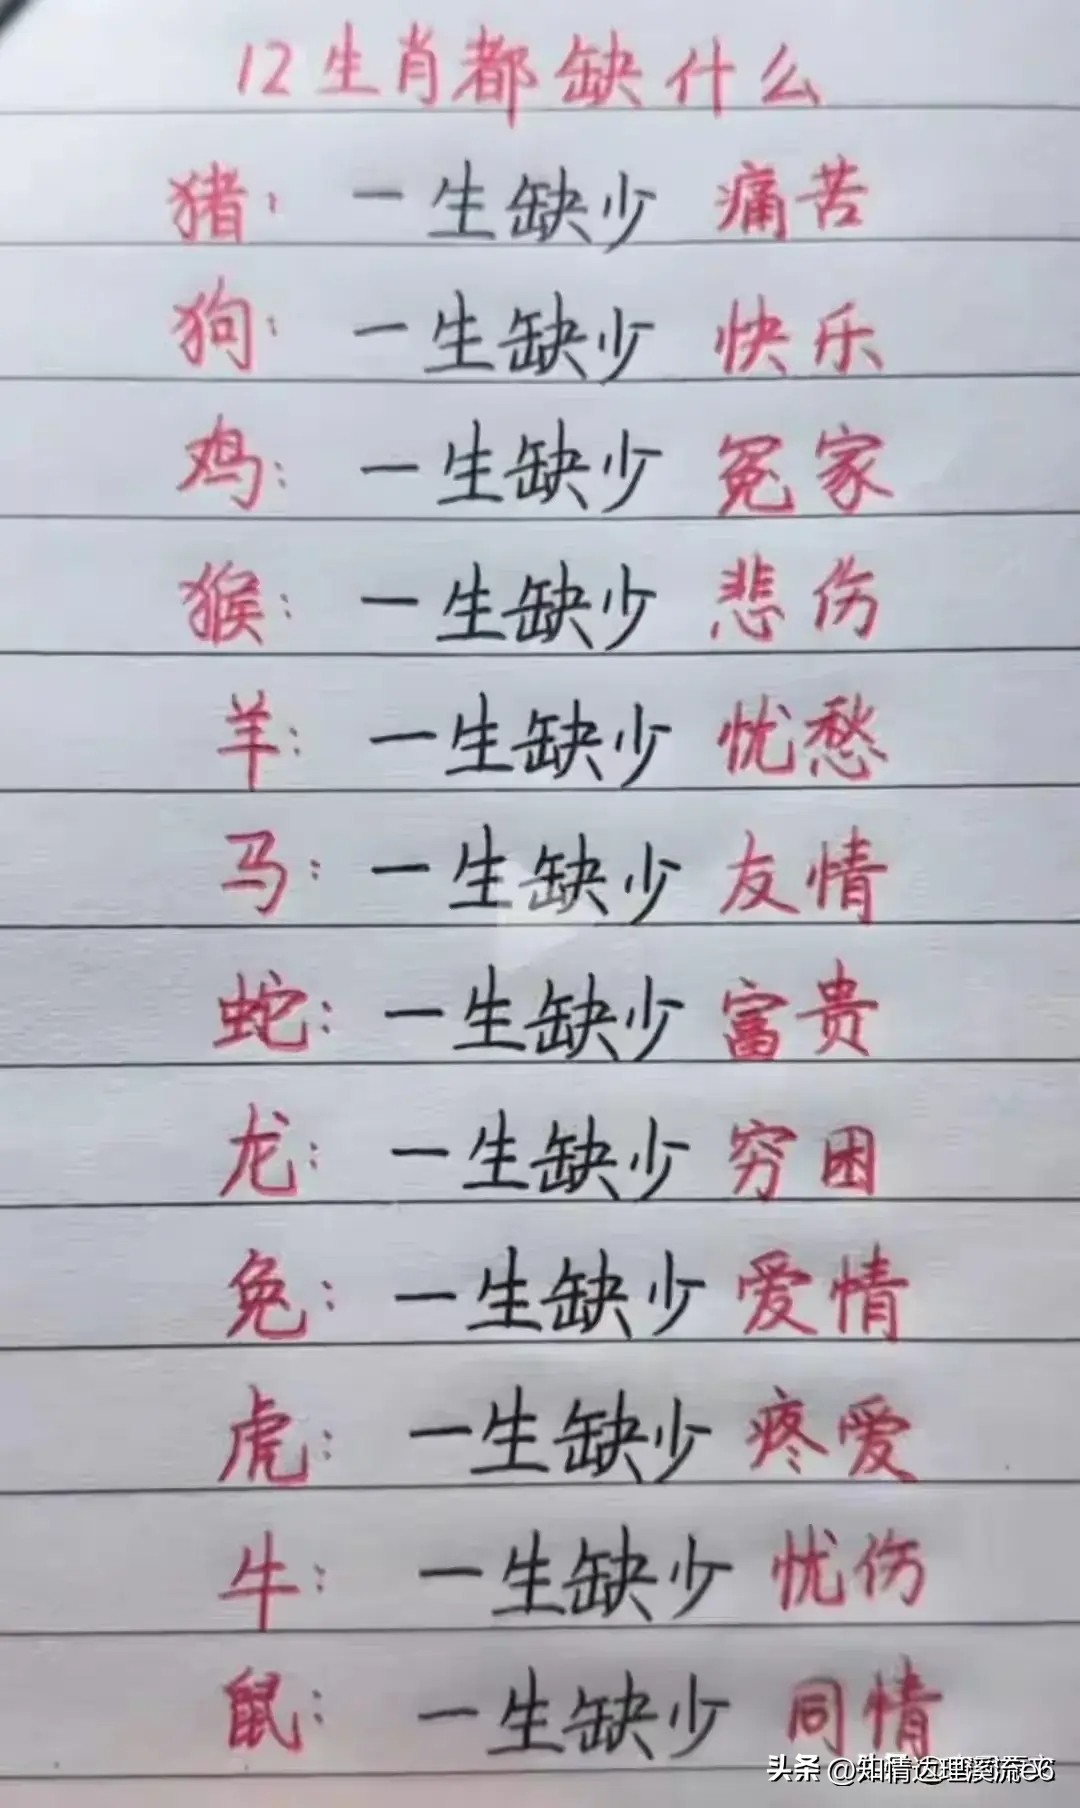 12生肖都缺什么
猪：一生缺少 痛苦
狗：一生缺少 快乐
鸡：一生缺少 冤家
猴：一生缺少 悲伤
羊：一生缺少 忧愁
马：一生缺少 友情
蛇：一生缺少 富贵
龙：一生缺少 穷困
兔：一生缺少 爱情
虎：一生缺少 疼爱
牛：一生缺少 忧伤
鼠：一生缺少 同情
头条 @知情达理溪流e6